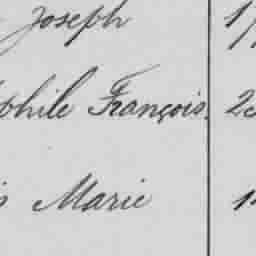 Joseph
phile François.
Marie